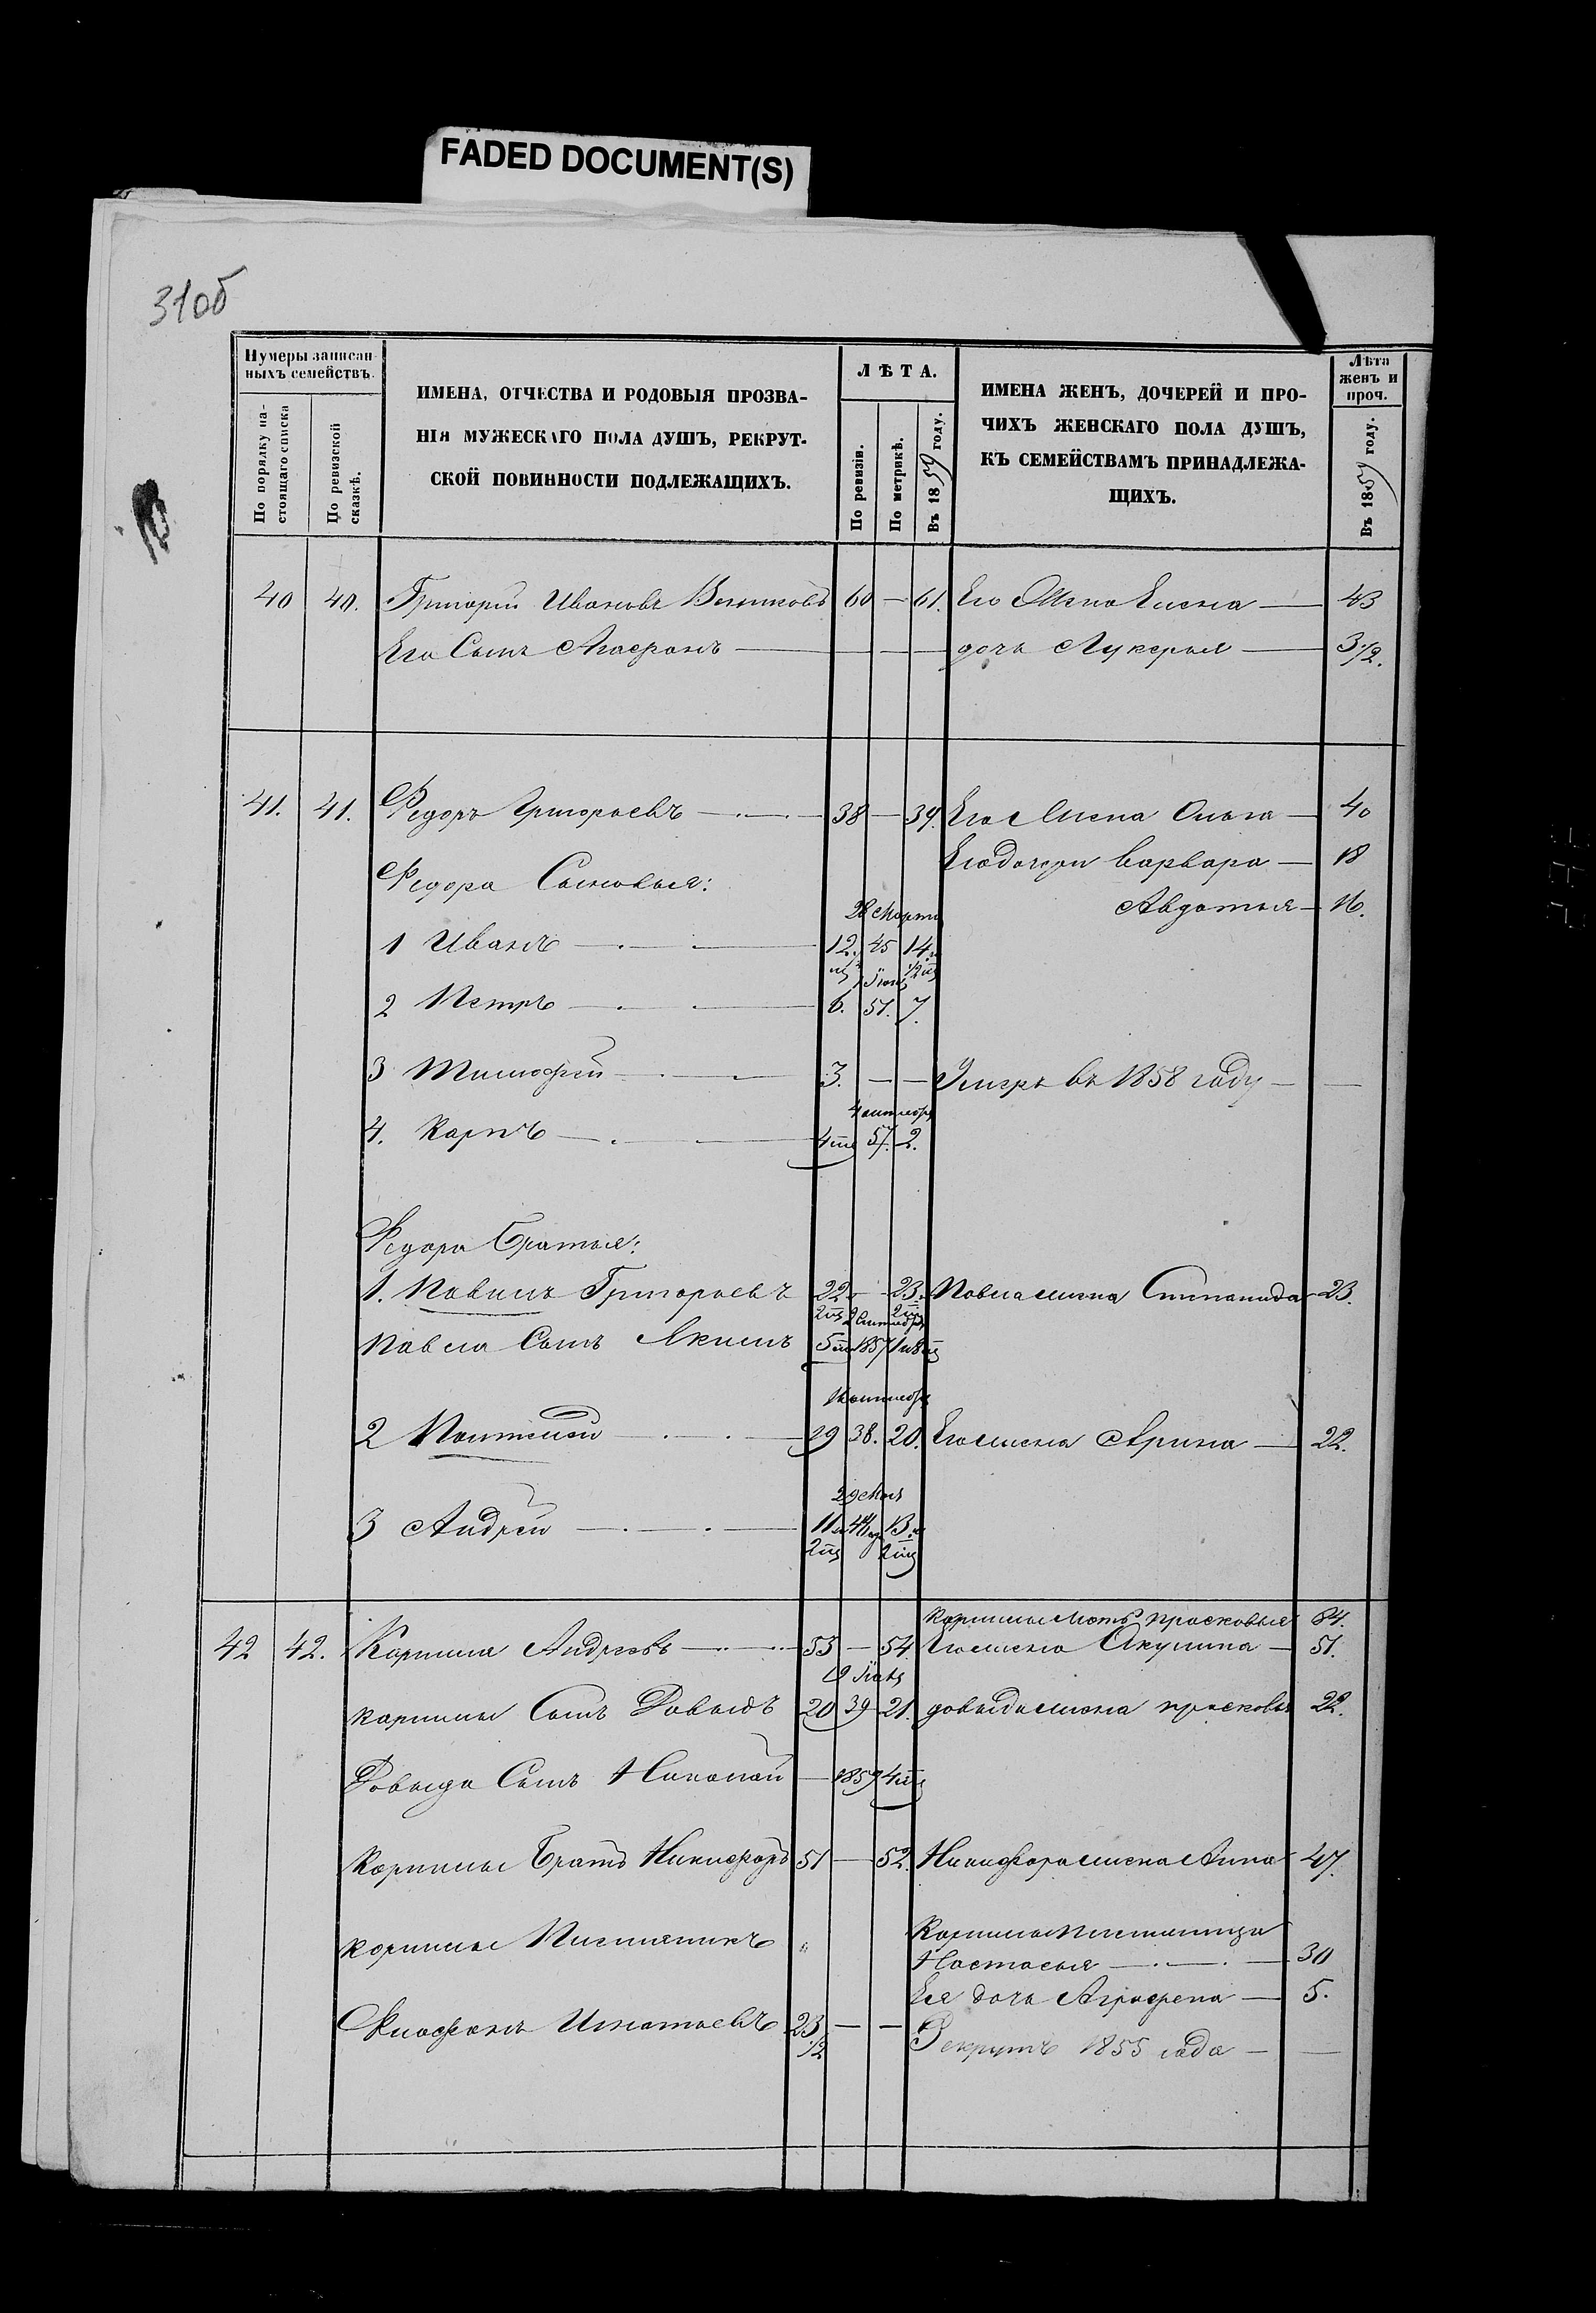 FADED DOCUMENT(S)
31об
Нумеры записан-
ныхъ семействъ.
По порядку на-
стоящаго списка
По ревизской
сказкѣ.
ИМЕНА, ОТЧЕСТВА И РОДОВЫЯ ПРОЗВА-
НІЯ МУЖЕСКАГО ПОЛА ДУШЪ, РЕКРУТ-
СКОЙ ПОВИННОСТИ ПОДЛЕЖАЩИХЪ.
ЛѢТА.
По ревизіи.
По метрикѣ.
Въ 1859 году.
ИМЕНА ЖЕНЪ, ДОЧЕРЕЙ И ПРО-
ЧИХЪ ЖЕНСКАГО ПОЛА ДУШЪ,
КЪ СЕМЕЙСТВАМЪ ПРИНАДЛЕЖА-
ЩИХЪ.
Лѣта
женъ и
проч.
Въ 1859 году.
40 40. Григорій Ивановъ 60 — 61. Его Жена Елена — 43
Его Сынъ Агафонъ — — — дочь Лукерья — 3 1/2.
41. 41. Федоръ Григорьевъ — 38 — 39. Его Жена Ольга — 40
Его дочери Варвара — 18
Федора Сыновья:
Авдотья — 16.
28 Марта
1 Иванъ — 12. 45 14.
1/2
2 Петръ — 6. 51. 7.
3 Тимофей — 3. — — Умеръ въ 1858 году —
4 октября
4. Карпъ — 4 57. 2.
Федора Братья:
1. Павелъ Григорьевъ 22 — 23. Павла жена Степанида 23.
Павла Сынъ Якимъ 5 1857 1 и 8
2 Пантелей — 19 38. 20. Его жена Арина — 22.
29 Мая
3 Андрей — 11 13
2 2
Карпилы Мать Прасковья 64.
42 42. Карпила Андреевъ — 53 — 54. Его жена Акулина — 51.
Карпилы Сынъ Давыдъ 20 39 21. Давыда жена Прасковья 22.
Давыда Сынъ Николай — 1859 4
Карпилы Братъ Никифоръ 51 — 52. Никифора жена Анна 47.
Карпилы Племянникъ
Карпилы племянница
Настасья — 30
Ея дочь Аграфена — 5.
Игнатьевъ 23 1/2 — —
Рекрутъ 1855 года —